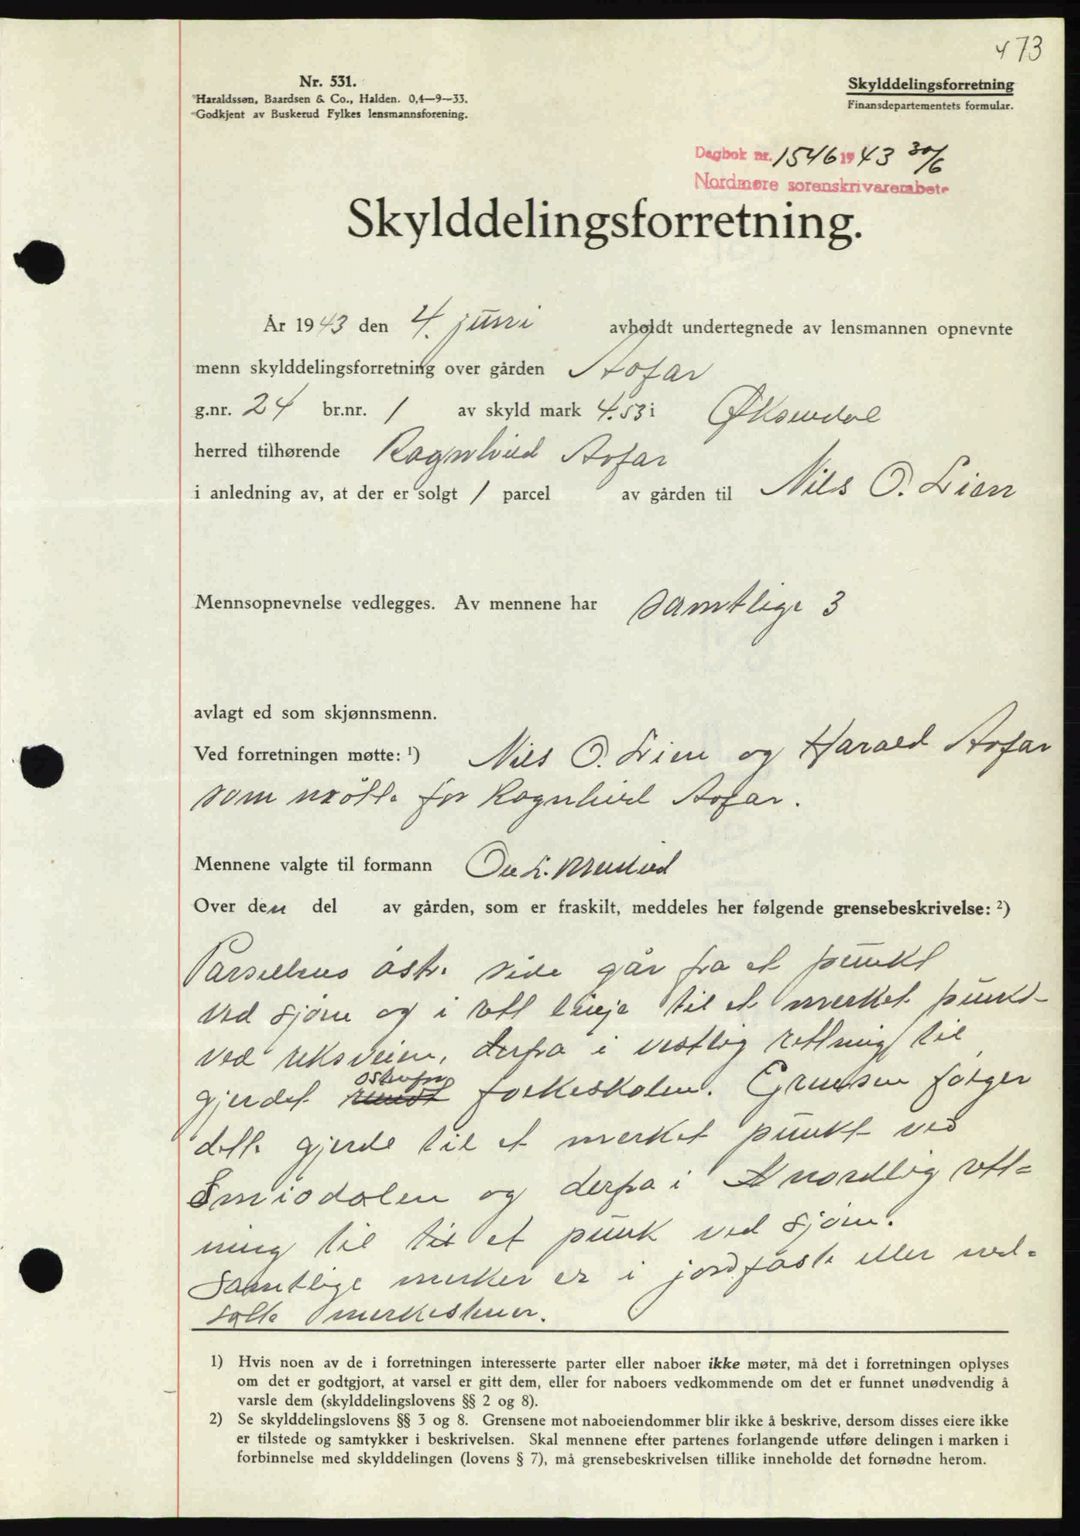 473
Nr. 531.
Haraldssøn, Baardsen & Co., Halden. 0,4—9—33.
Godkjent av Buskerud Fylkes lensmannsforening.
Skylddelingsforretning
Finansdepartementets formular.
Dagbok nr. 1546 1943 30/6
Nordmøre sorenskrivarembete
Skylddelingsforretning.
År 1943 den 4. juni avholdt undertegnede av lensmannen opnevnte
menn skylddelingsforretning over gården Aofar
g.nr. 24 br.nr. 1 av skyld mark 4.53 i Øksendal
herred tilhørende Ragnhild Aofar
i anledning av, at der er solgt 1 parcel av gården til Nils O. Lien
Mennsopnevnelse vedlegges. Av mennene har samtlige 3
avlagt ed som skjønnsmenn.
Ved forretningen møtte: ¹) Nils O. Lien og Harald Aofar
som møtte for Ragnhild Aofar.
Mennene valgte til formann
Over den del av gården, som er fraskilt, meddeles her følgende grensebeskrivelse: ²)
Parsellens østre side går fra et punkt
ved sjøen og i rett linje til et merket punkt
ved riksveien, derfra i vestlig retning til
gjerdet rundt østenfor folkeskolen. Grensen følger
dette gjerde til et merket punkt ved
Smiodalen og derfra i nordlig rett=
ning til til et punk ved sjøen.
Samtlige merker er i jordfaste eller ned=
satte merkestener.
1) Hvis noen av de i forretningen interesserte parter eller naboer ikke møter, må det i forretningen oplyses
om det er godtgjort, at varsel er gitt dem, eller for naboers vedkommende om det er funnet unødvendig å
varsle dem (skylddelingslovens §§ 2 og 8).
2) Se skylddelingslovens §§ 3 og 8. Grensene mot naboeiendommer blir ikke å beskrive, dersom disses eiere ikke
er tilstede og samtykker i beskrivelsen. Skal mennene efter partenes forlangende utføre delingen i marken i
forbinnelse med skylddelingen (lovens § 7), må grensebeskrivelsen tillike inneholde det fornødne herom.